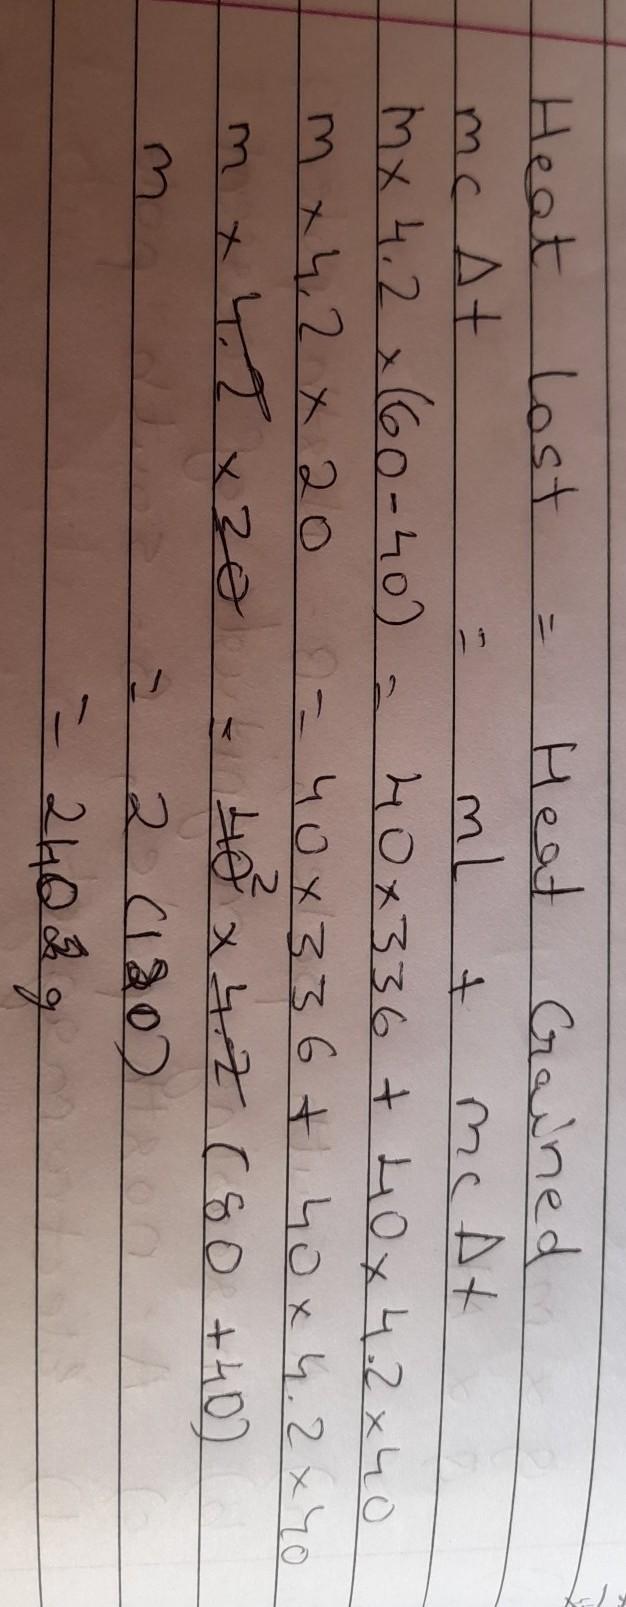 Heat lost = Heat Gained
mc Δt = ml + mc Δt
m×4.2×(60-40) = 40×336 + 40×4.2×40
m×4.2×20 = 40×336 + 40×4.2×40
m × 4.2 × 20 = 40² × 4.2 (80 + 40)
m = 2 (120)
= 240 g